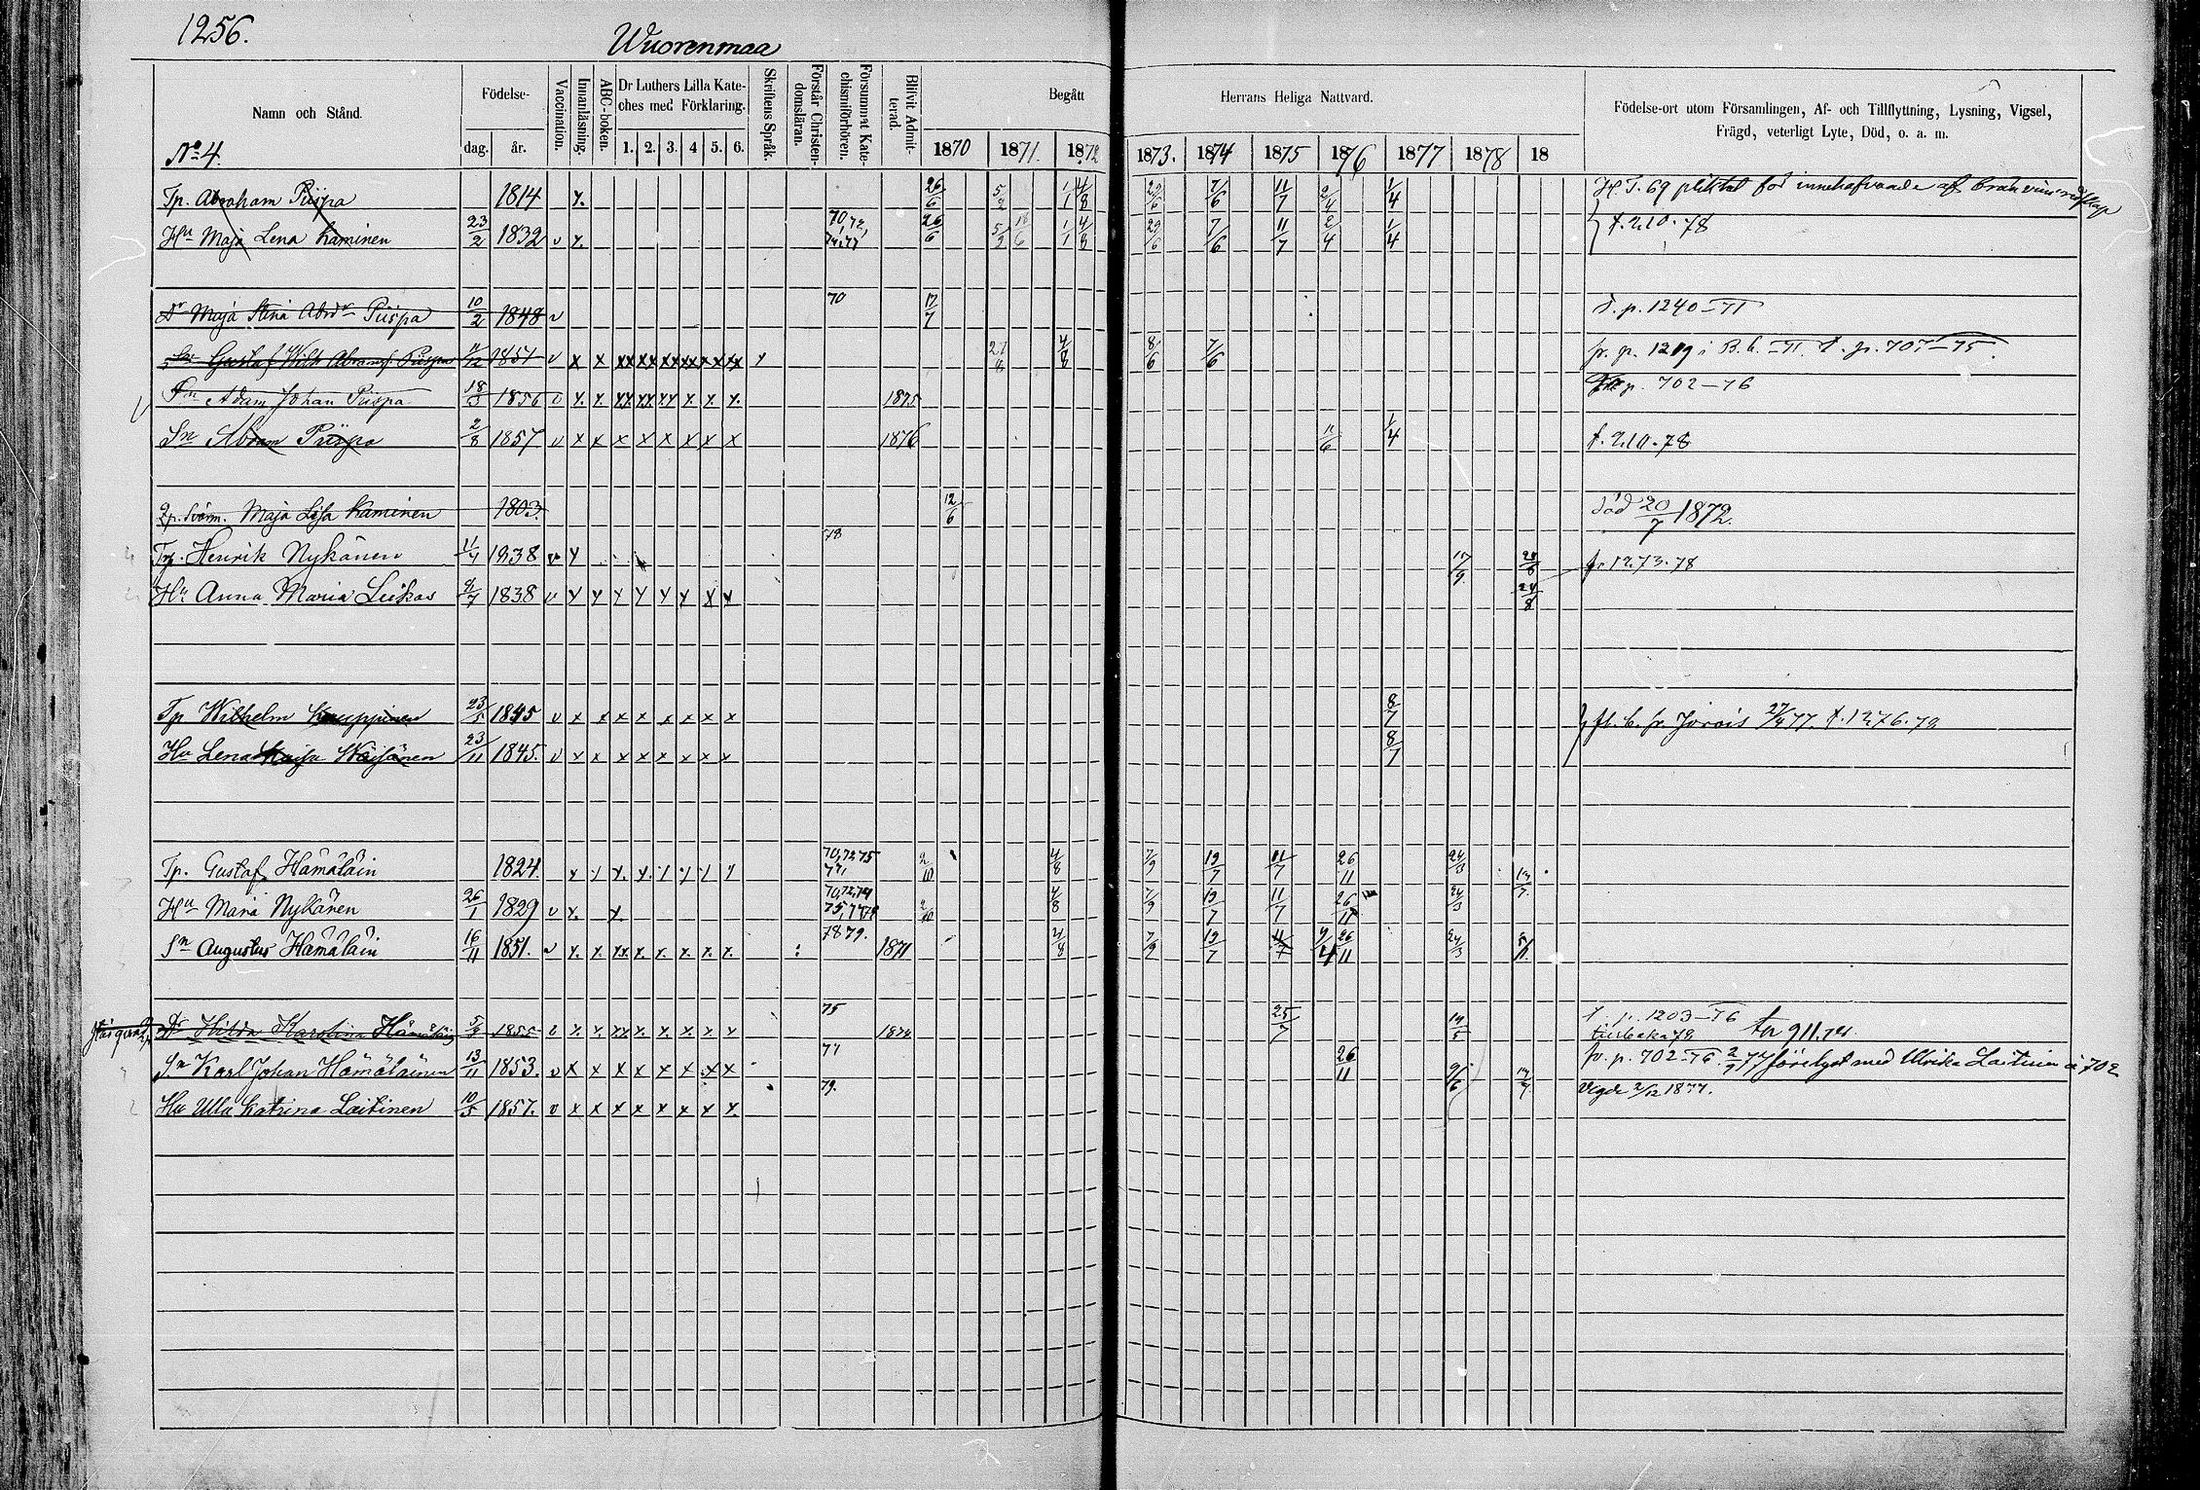 1256.
Wuorenmaa
Namn och Stånd.
Födelse-
dag.
år.
Vaccination.
Innanläsning.
ABC-boken.
Dr Luthers Lilla Kate-
ches med Förklaring.
1. 2. 3. 4 5. 6.
Skriftens Språk.
Förstår Christen-
domsläran.
Försummat Kate-
chismiförhören.
Blifvit Admit-
terad.
Begått
Herrans Heliga Nattvard.
1870 1871. 1872 1873. 1874 1875 1876 1877 1878 18
Födelse-ort utom Församlingen, Af- och Tillflyttning, Lysning, Vigsel,
Frägd, veterligt Lyte, Död, o. a. m.
No 4.
Tp. Abraham Püspa 1814 x. 26/6 5/2 1/1 4/8 29/6 7/6 11/7 2/4 1/4 H T. 69 pliktat för innehafvande af
Hu Maja Lena Kaminen 23/2 1832 v x. 70, 72, 26/6 1/1 4/8 29/6 7/6 11/7 2/4 1/4 t. 210. 78
Dr Maja Stina Abrdr Püspa 10/2 1848 v 70 17/7 t. p. 1240-71
Sn Gustaf Wilh Abramsf Püspa 11/12 1851 v x x xx xx xx xx xx xx 27/8 4/8 8/6 7/6 fr. p. 1219 i B. b. -71. t. p. 707-75.
Sn Adam Johan Püspa 18/3 1856 v x. x. xx xx xx x. x. x. 1875 p. 702-76
Sn Abram Püspa 2/8 1857. v x x x x x x x x 1876 11/6 1/4 t. 210-78
Maja Lisa Kaminen 1803. 12/6 död 20/7 1872.
Tp. Henrik Nykänen 11/4 1838 v x 78 17/9 fr. 1273. 78
Hu Anna Maria Leikas 9/7 1838 v x x x x x x x x 24/8
Tp Wilhelm Kauppinen 23/5 1845 v x x x x x x x x 8/7 fl. b. fr Jorois 27/4 77. t. 1276. 79
Hu Lena Kaisa Wäisänen 23/11 1845. v x x x x x x x x 8/7
Tp. Gustaf Hämäläin 1824. x x x. x. x x x x 70, 72 75 2/10 4/8 7/9 19/7 11/7 26/11 24/3 13/7
Hu Maria Nykänen 26/1 1829 v x. x 70, 72, 74 2/10 4/8 7/9 19/7 11/7 26/11 24/3
Sn Augustus Hämäläin 16/11 1851. v x. x. xx x. x. x. x. x. 78 79. 1871 4/8 7/9 19/7 11/7 26/11 24/3
Dr Hilda Karolina Hämäläin 1855 v x. x. xx x. x. x. x x 75 25/7 19/5 t. p. 1203-76
tillbaka 78 911.
Sn Karl Johan Hämäläinen 13/11 1853. v x x x x x x x x 77 26/11 9/6 13/7. fr. p. 702-76. 2/9 77 förelyst med Ulrika Laitinen å 702
Hu Ulla Katrina Laitinen 10/5 1857. v x x x x x x x x. 79. Vigde 2/12 1877.